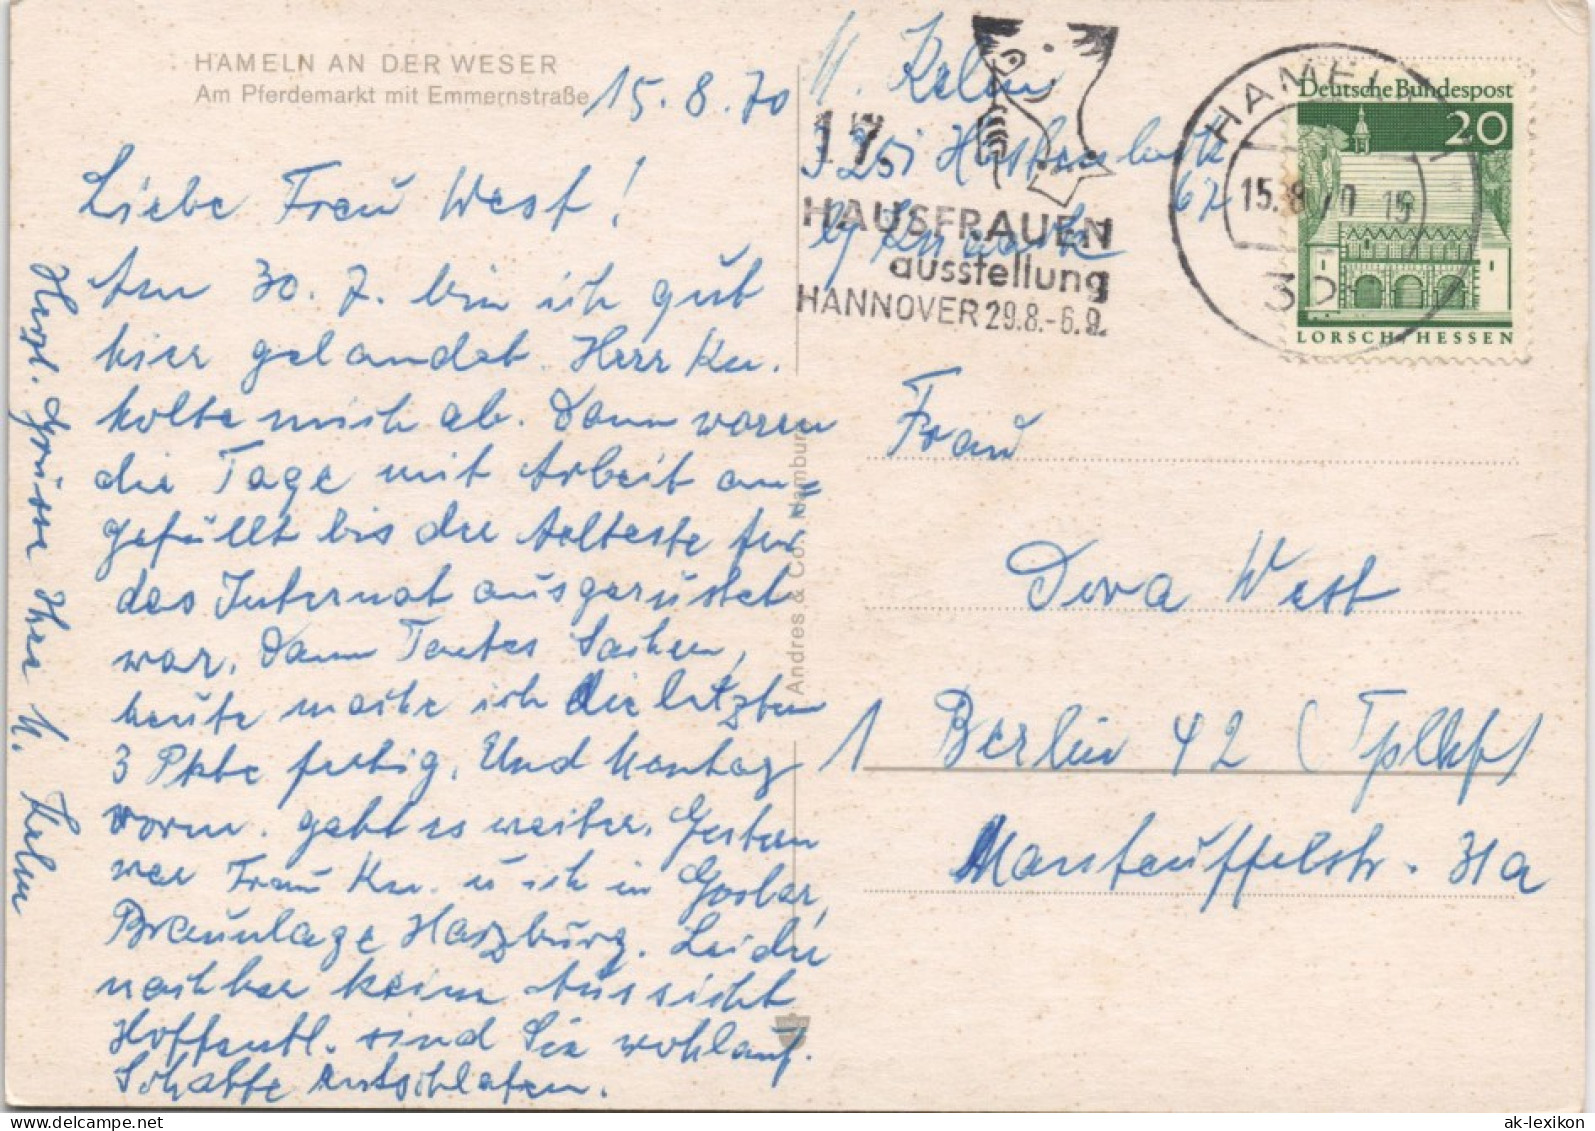 HAMELN AN DER WESER
Am Pferdemarkt mit Emmernstraße
15.8.70
Liebe Frau West!
Am 30.7. bin ich gut
hier gelandet. Herr Ku.
holte mich ab. Dann waren
die Tage mit Arbeit an=
gefüllt bis die Aelteste für
das Internat ausgerüstet
war. Dann Tantes Sachen,
heute mache ich die letzten
3 Pkte fertig. Und Montag
vorm. geht es weiter. Gestern
war Frau Ku. u ich in Goslar,
Braunlage Harzburg. Leider
nachher keine Aussicht
Hoffentl. sind Sie wohlauf.
Schaffe Entschlafen.
Herzl. Grüsse Ihre H. Kelm
Andres & Co., Hamburg
Kelm
3251
67
17.
HAUSFRAUEN
ausstellung
HANNOVER 29.8.-6.9.
HAMELN 1
15.8.70 15
325
Deutsche Bundespost
20
LORSCH/HESSEN
Frau
Dora West
1 Berlin 42 (Tplhf)
Manteuffelstr. 31a
ak-lexikon